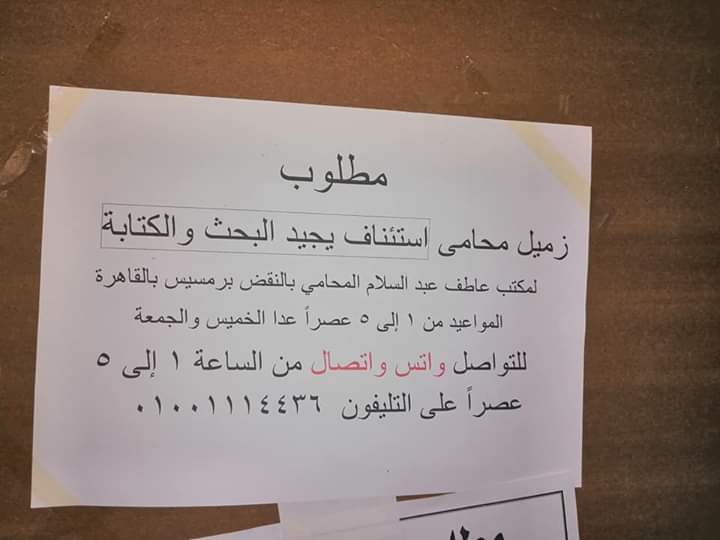 مطلوب
زميل محامى استئناف يجيد البحث والكتابة
لمكتب عاطف عبد السلام المحامي بالنقض برمسيس بالقاهرة
المواعيد من ١ إلى ٥ عصراً عدا الخميس والجمعة
للتواصل واتس واتصال من الساعة ١ إلى ٥
عصراً على التليفون ٠١٠٠١١١٤٤٣٦